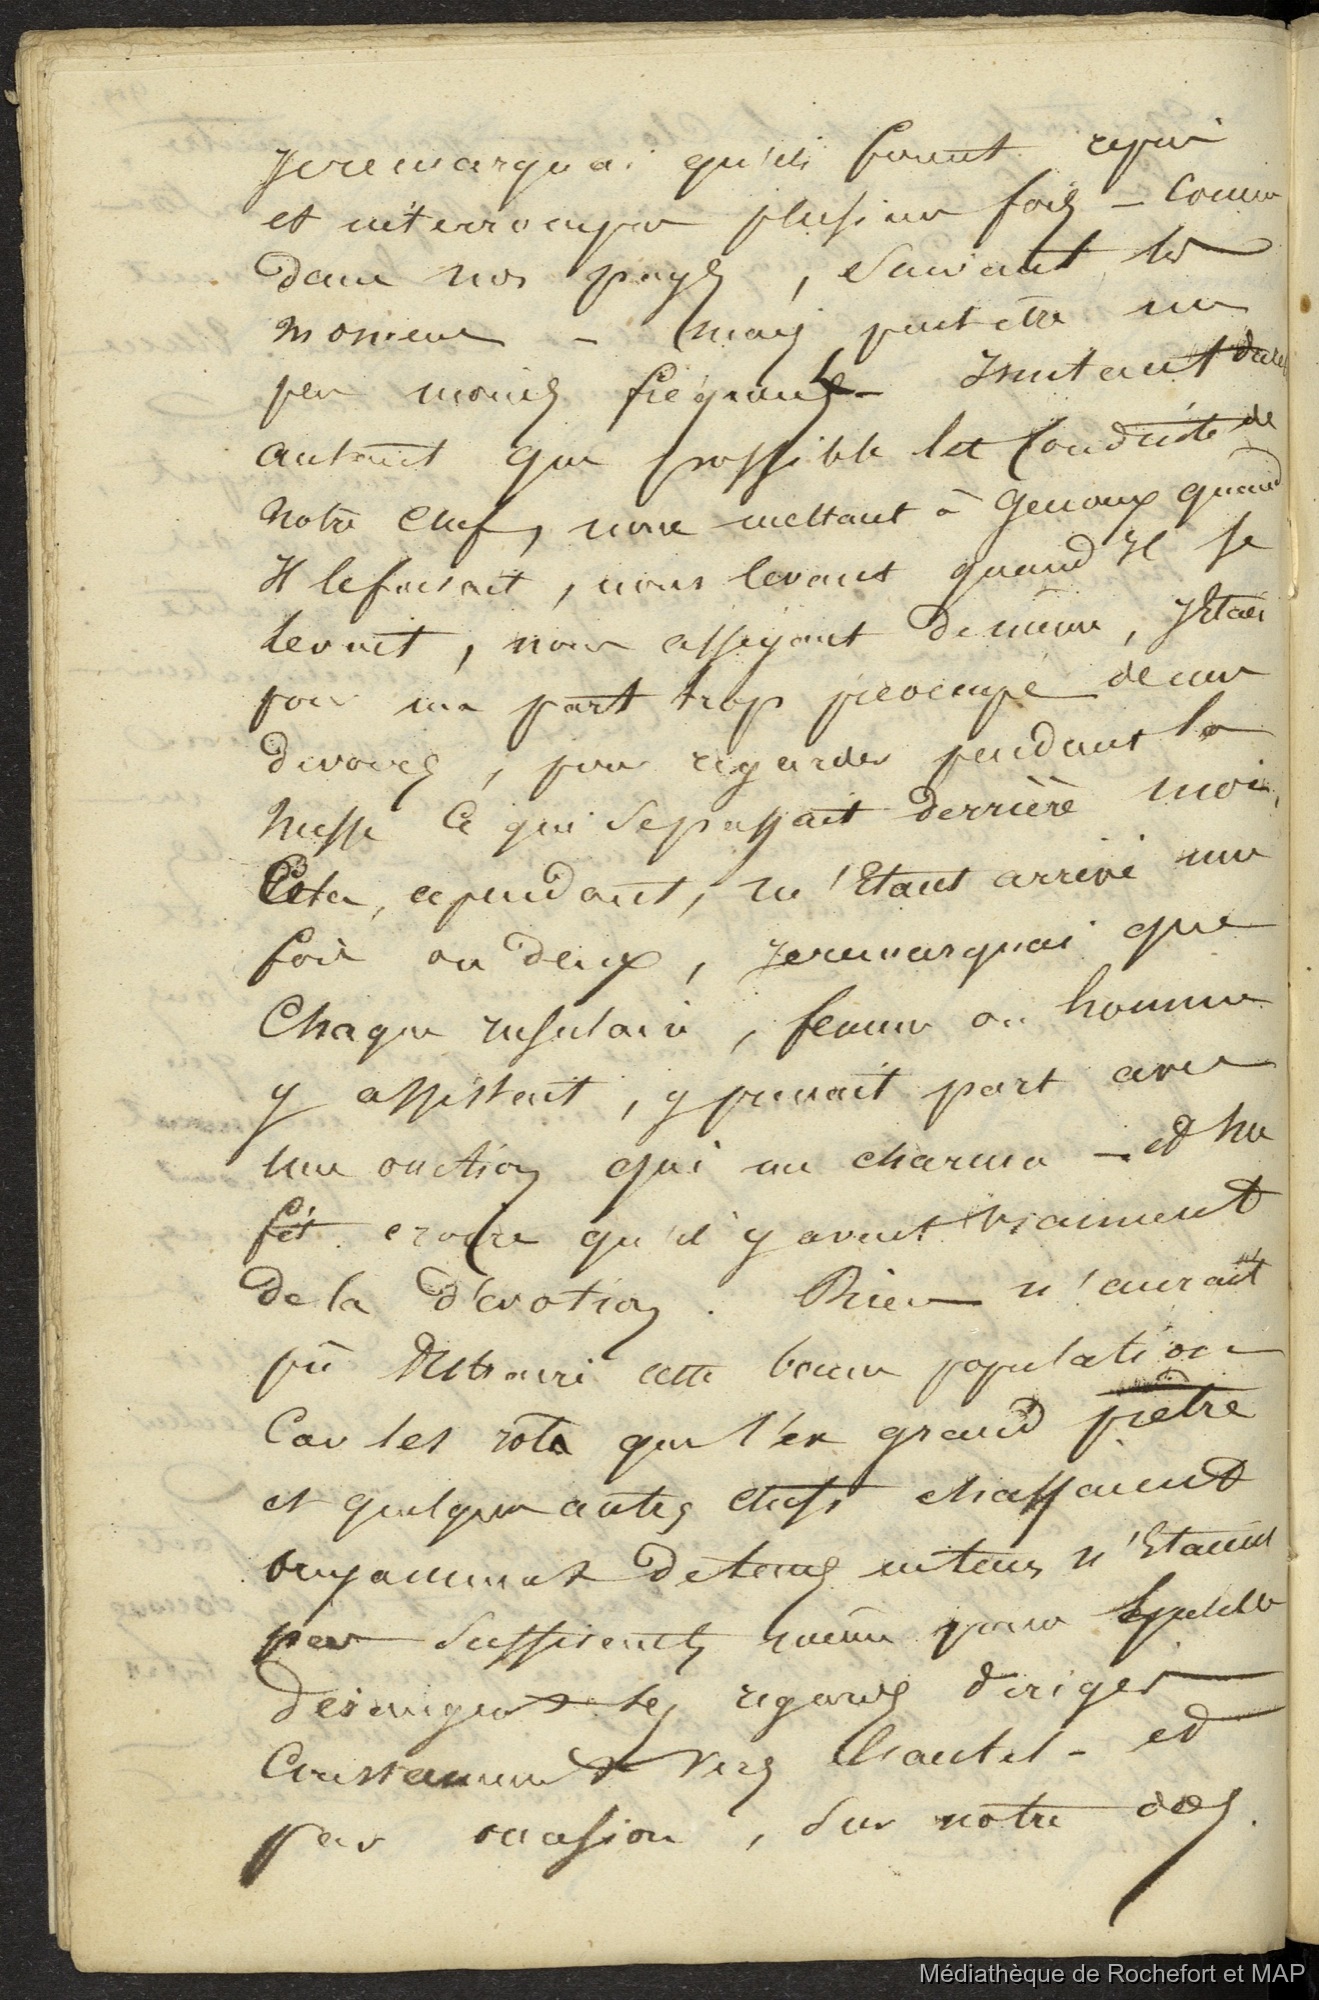 Je remarquai qu'ils furent repris
et interrompus plusieurs fois - Comme
dans nos pays, Suivant les
Moments - mais peut etre un
peu moins fréquents - Imitant dailleurs
autant que possible la Conduite de
Notre Chef, nous mettant à Genoux quand
Il le faisait, nous levant quand Il se
levait, nous asseyant de même, J'Etais
pour ma part trop préocupé de mes
devoirs, pour regarder pendant la
Messe Ce qui Se passait derrière moi,
Cela, cependant, m'Etant arrivé une
fois ou deux, Je remarquai que
Chaque insulaire, femme ou homme
y assistait, y prenait part avec
une onction qui me charma - et me
fit croire qu'il y avait vraiment
de la dévotion. Rien n'aurait
pû distraire cette bonne population
Car les rots que l'ex grand prêtre
et quelques autres chefs chassaient
bruyamment de tems en tems, n'Etaient
pas Suffisants même pour
déranger les regards diriges
Constamment vers l'hautel - et
par occasion, Sur notre dos.
Médiathèque de Rochefort et MAP